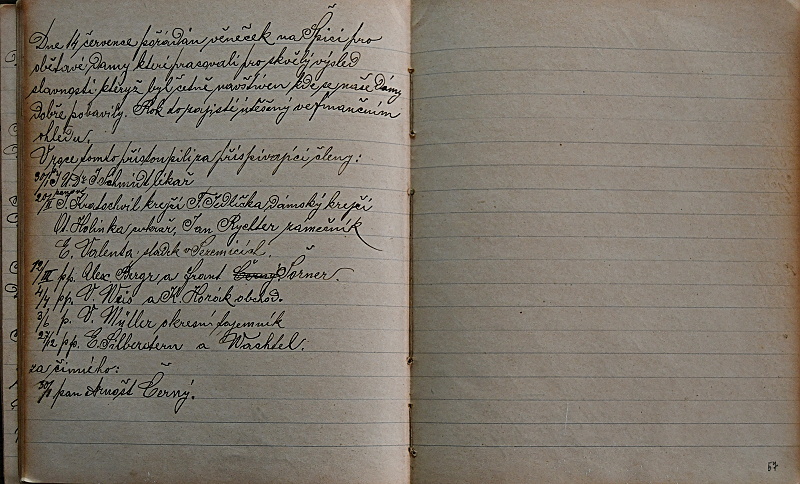 Dne 14 července pořádán věneček na Špici pro
obětavé dámy které pracovali pro skvělý výsled
slavnosti kterýž byl četně navštíven kde se naše dámy
dobře pobavily. Rok to zajisté utěšený ve finančním
ohledu.
V roce tomto přistoupili za přispívající členy:
30/1 J. U. Dr. J. Schmidt lékař
20/II J. Kratochvil krejčí F. Jedlička dámský krejčí
Ot. Holinka cukrář, Jan Rychter zámečník
E. Valenta sládek v
12/III pp. Alex Bergr a Frant Šorner.
4/4 pp. V. Weis a K. Horák obchod.
3/6 p. V. Müller okresní tajemník
27/12 pp. E. Silberstern a Wachtel.
za činného:
30/1 pan Arnošt Černý.
57